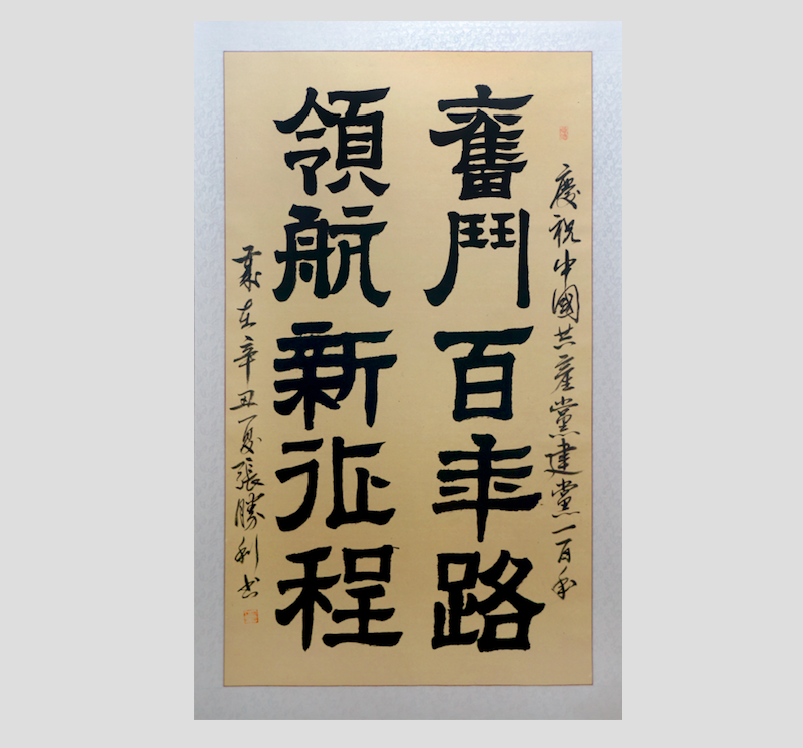 慶祝中國共產黨建黨一百年
奮鬥百年路
領航新征程
歲在辛丑夏張勝利書